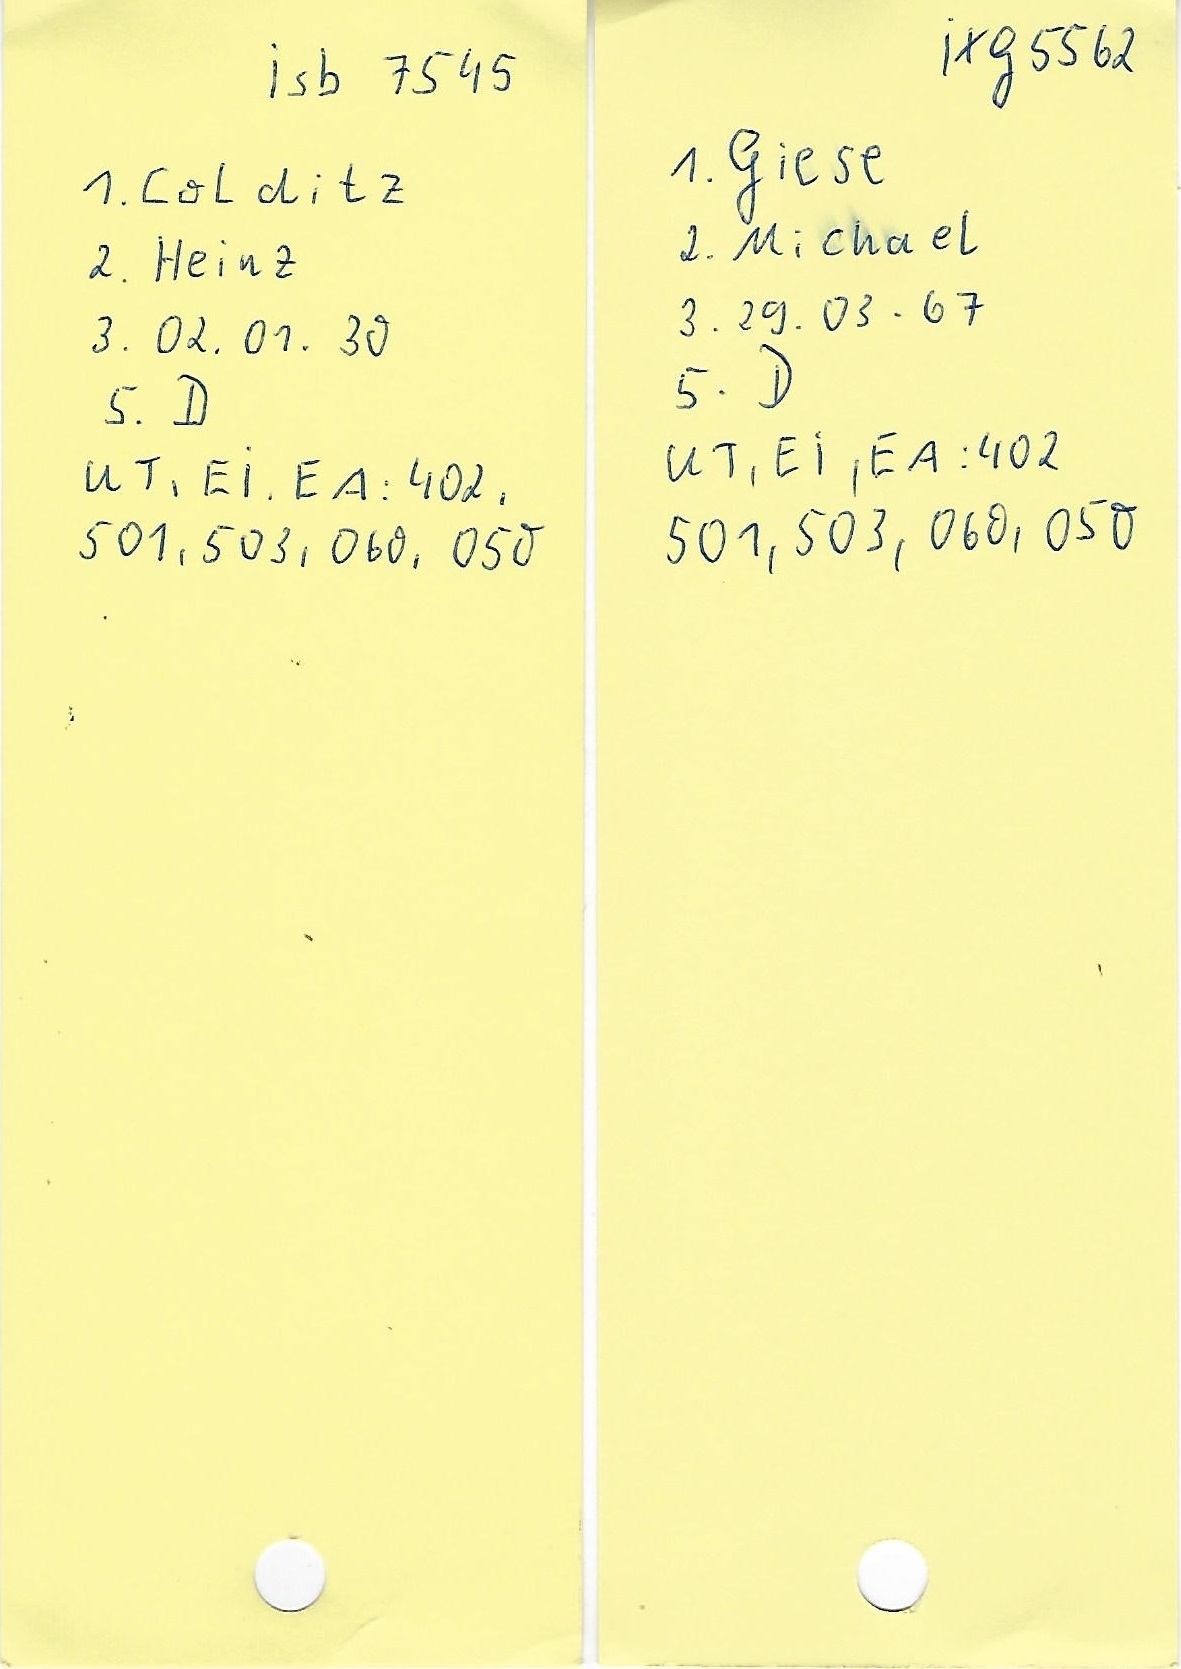 isb 7545
1. Colditz
2. Heinz
3. 02. 01. 30
5. D
UT, EI. EA: 402,
501, 503, 060, 050
ixg 5562
1. Giese
2. Michael
3. 29. 03. 67
5. D
UT, EI, EA: 402
501, 503, 060, 050